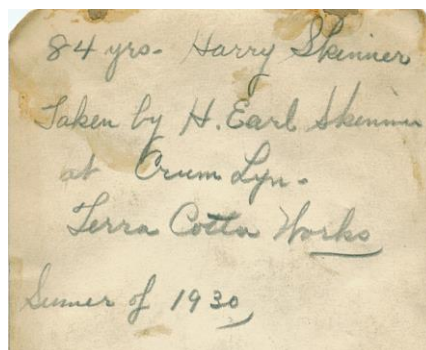 84 yrs- Harry Skinner
Taken by H. Earl Skinner
at Crum Lyn-
Terra Cotta Works
Sumer of 1930